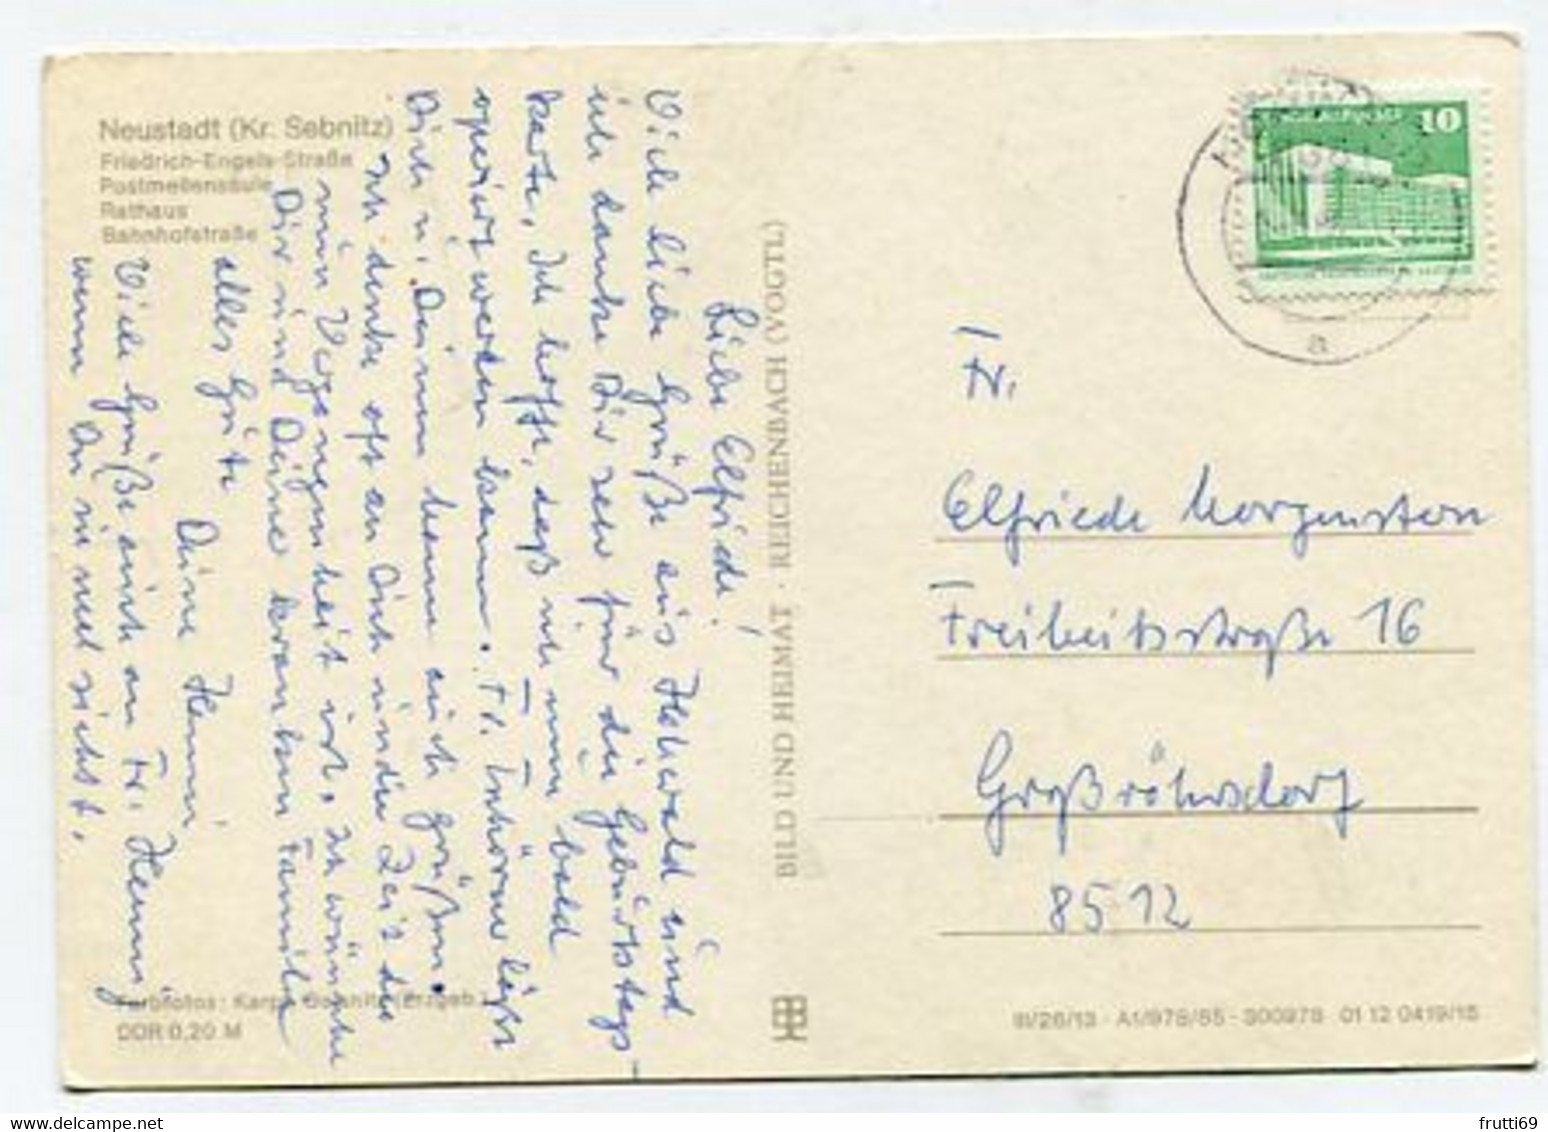 Neustadt (Kr. Sebnitz)
Friedrich-Engels-Straße
Postmeilensäule
Rathaus
Bahnhofstraße
Liebe Elfriede!
Viele liebe Grüße aus Hohwald und
ich danke Dir sehr für die Geburtstags-
karte, Ich hoffe, daß ich nun bald
operiert werden kann. Fr. läßt
Dich u. Deinen Mann auch grüßen.
Ich denke oft an Dich in der Zeit die
nun Vergangenheit ist. Ich wünsche
Dir und Deiner kranken Familie
alles Gute
Deine Henni
Viele Grüße auch an Fr. Henni
wenn Du sie mal siehst.
Farbfotos: (Erzgeb.)
DDR 0,20 M
BILD UND HEIMAT · REICHENBACH (VOGTL)
10
a
Fr.
Elfriede Morgenstern
Freiheitsstraße 16
Großröhrsdorf
8512
III/26/13 · A1/978/85 · 300978 01 12 0419/15
frutti69